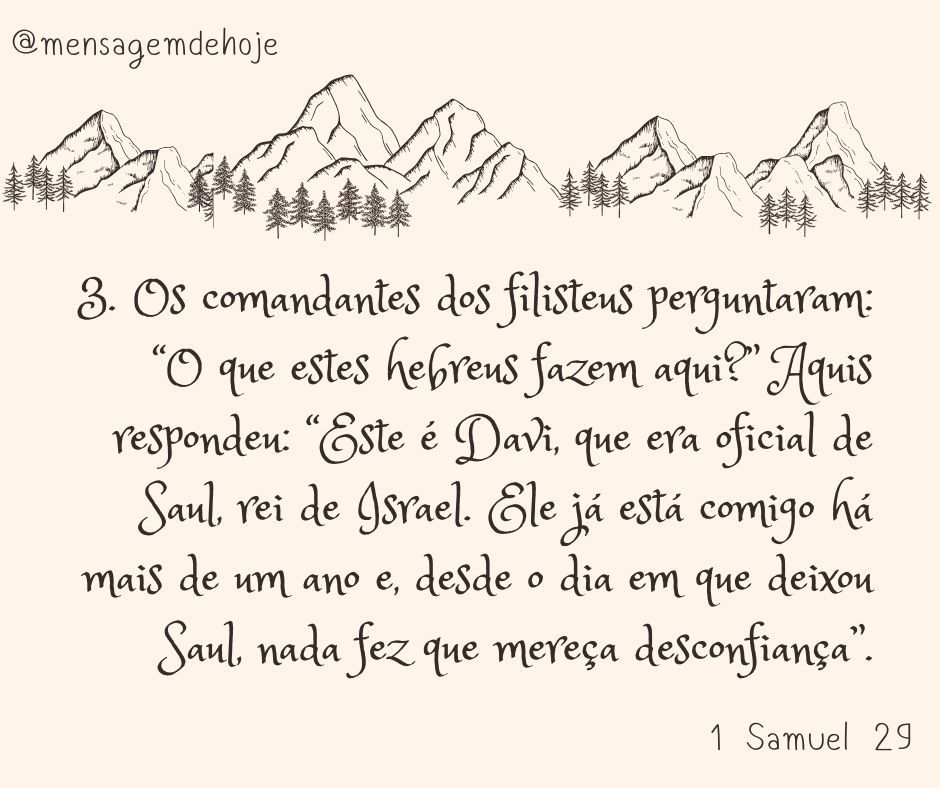 @mensagemdehoje
3. Os comandantes dos filisteus perguntaram:
“O que estes hebreus fazem aqui?” Aquis
respondeu: “Este é Davi, que era oficial de
Saul, rei de Israel. Ele já está comigo há
mais de um ano e, desde o dia em que deixou
Saul, nada fez que mereça desconfiança”.
1 Samuel 29